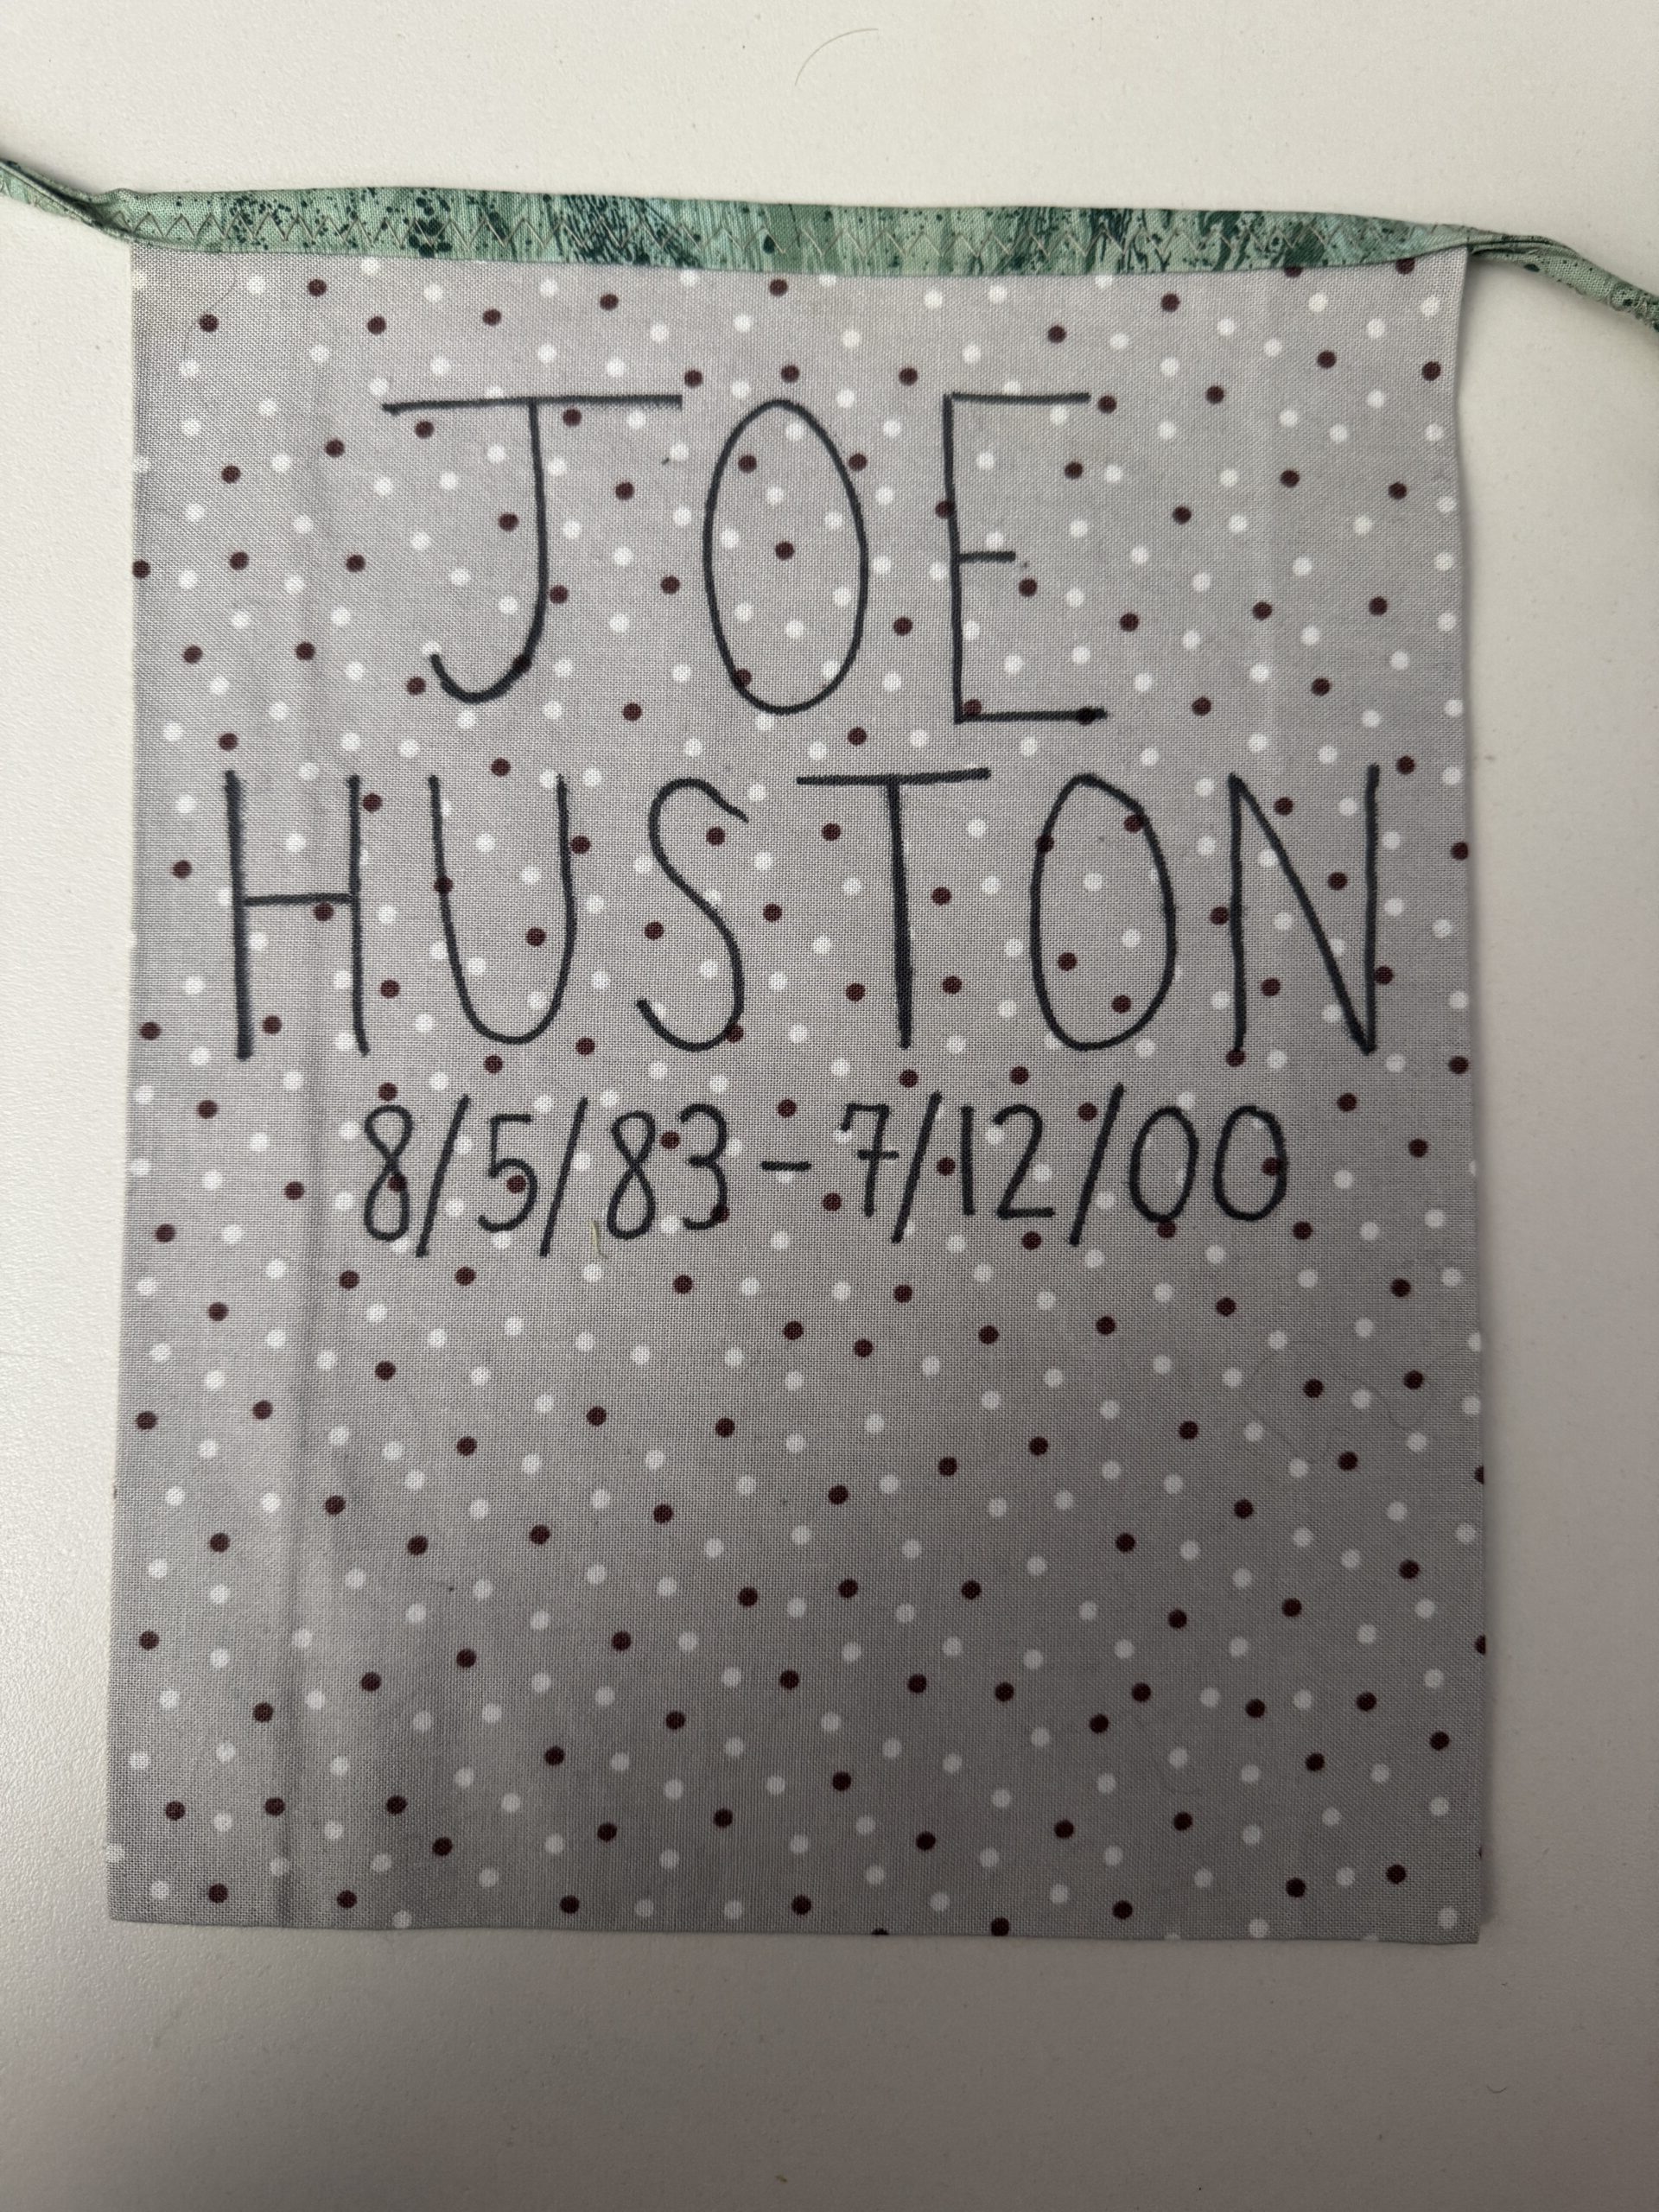 JOE
HUSTON
8/5/83-7/12/00